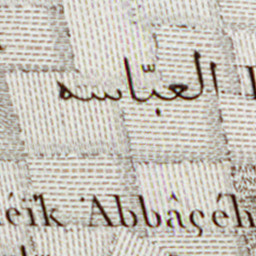 العبّاسه
éïk Abbâçéh